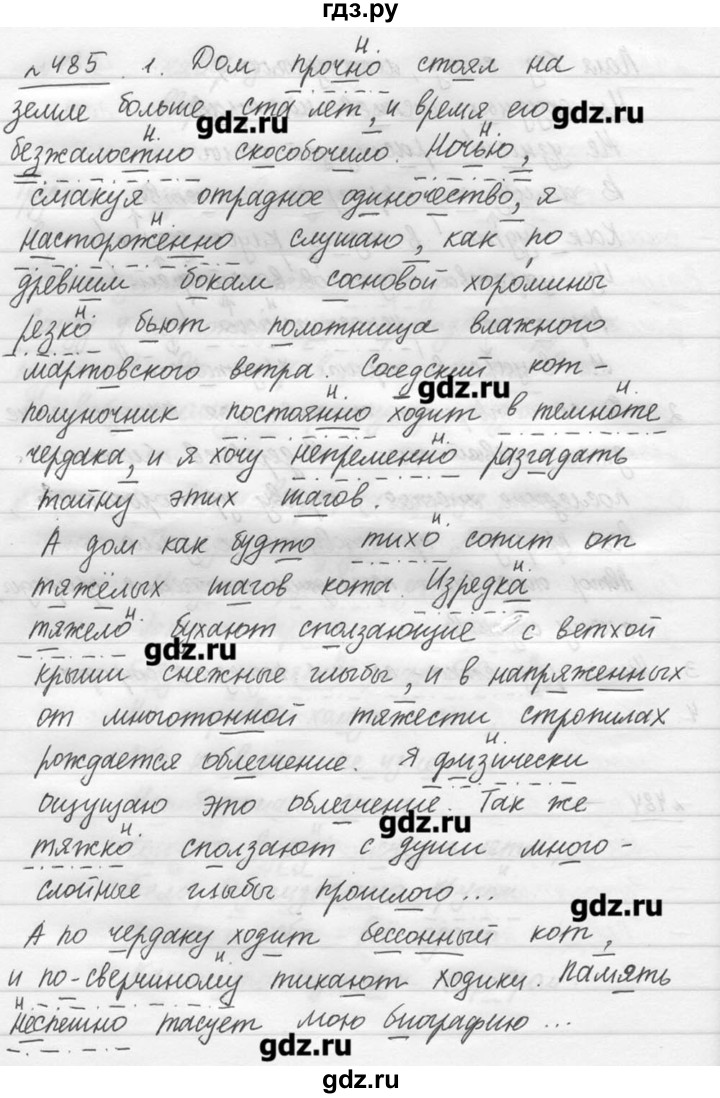 гдз.ру
н.
№485. 1. Дом прочно стоял на
земле больше ста лет, и время его
gdz.ru gdz.ru
н. н.
безжалостно скособочило. Ночью,
смакуя отрадное одиночество, я
н.
настороженно слушаю, как по
древним бокам сосновой хоромины
н.
резко бьют полотнища влажного
мартовского ветра. Соседский кот-
gdz.ru
н. н.
полуночник постоянно ходит в темноте
н.
чердака, и я хочу непременно разгадать
тайну этих шагов.
н.
А дом как будто тихо сопит от
тяжёлых шагов кота. Изредка
н. н.
тяжело бухают сползающие с ветхой
gdz.ru
крыши снежные глыбы, и в напряженных
от многотонной тяжести стропилах
н.
рождается облегчение. Я физически
ощущаю это облегчение. Так же
gdz.ru
н.
тяжко сползают с души много-
слойные глыбы прошлого...
gdz.ru
А по чердаку ходит бессонный кот,
н.
и по-сверчиному тикают ходики. Память
н.
неспешно тасует мою биографию...
gdz.ru
gdz.ru